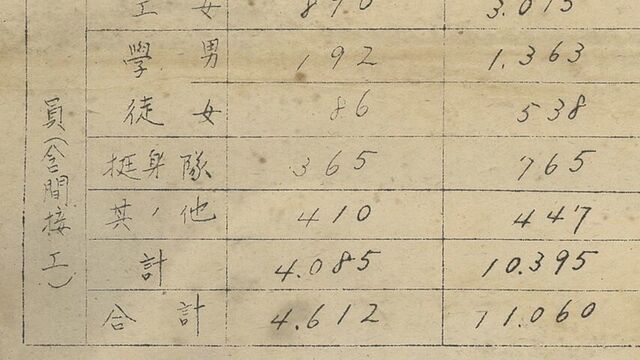 工 女 890 3.075
學 男 192 1.363
徒 女 86 538
挺身隊 365 765
其ノ他 410 447
計 4.085 10.395
合計 4.612 11.060
員(含間接工)